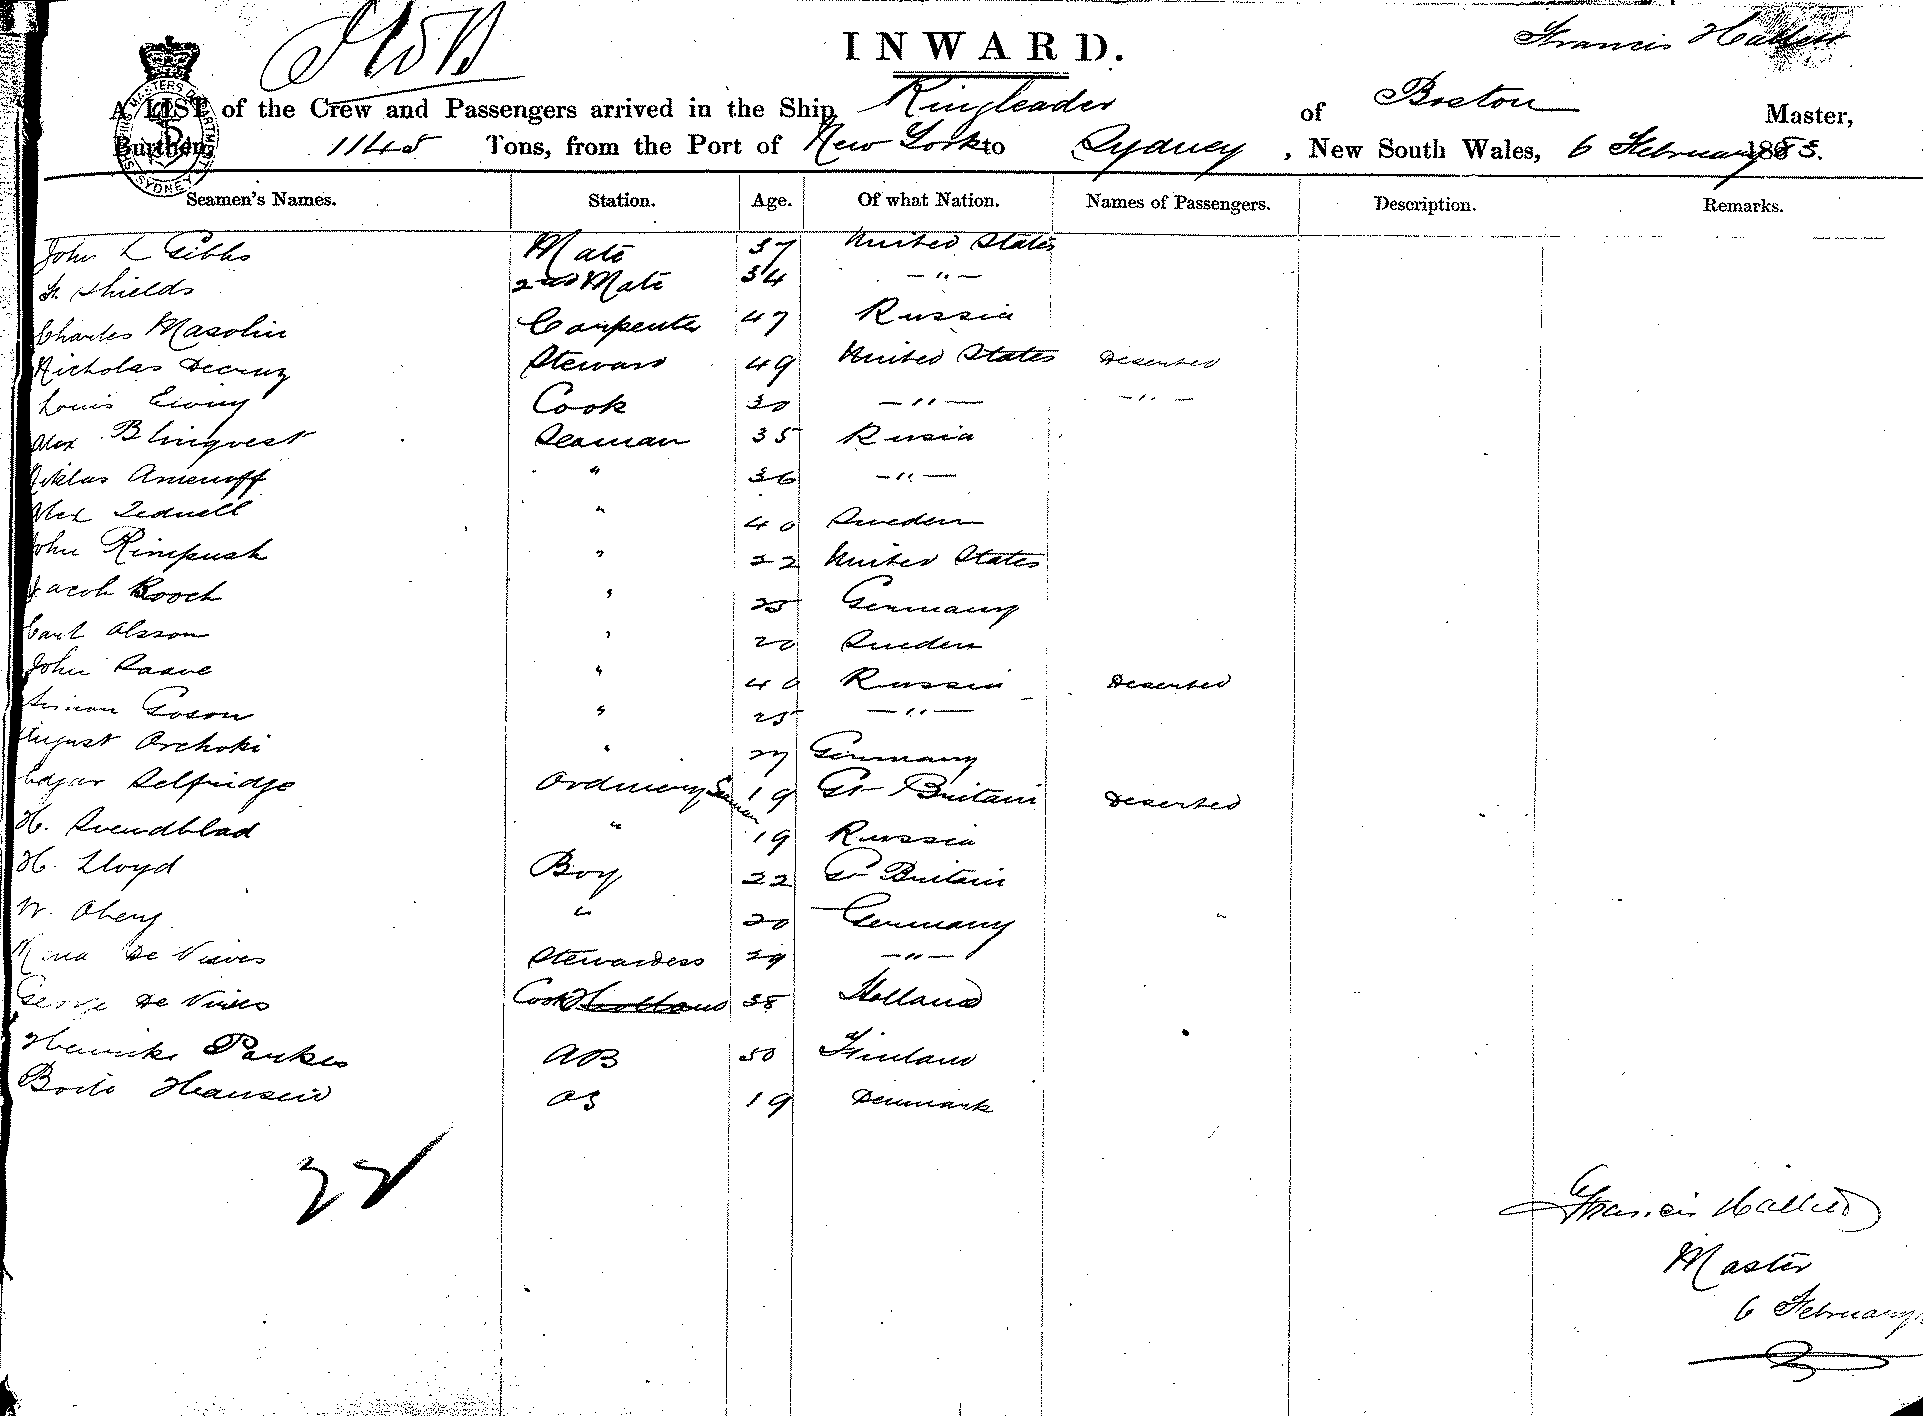 INWARD.
Francis Hallett
A LIST of the Crew and Passengers arrived in the Ship Ringleader of Boston Master,
Burthen, 1145 Tons, from the Port of New York to Sydney, New South Wales, 6 February 1883.
Seamen's Names. Station. Age. Of what Nation. Names of Passengers. Description. Remarks.
John L Gibbs Mate 37 United States
Shields 2nd Mate 34 — " —
Charles Masolin Carpenter 47 Russia
Nicholas Decruz Steward 49 United States Deserted
Louis Ewing Cook 30 — " — — " —
Alex Blinqvest Seaman 35 Rusia
Niklas Amenoff " 36 — " —
Alex Lednell " 40 Sweden
John Rimpush " 22 United States
Jacob Booch " 25 Germany
Carl Olsson " 20 Sweden
John Saave " 40 Russia Deserted
Simon Goson " 25 — " —
August Orchoki " 27 Germany
Edgar Selfridge Ordinary Seaman 19 Gt Britain Deserted
H. Svendblad " 19 Russia
H. Lloyd Boy 22 Gt Britain
W. Obeny " 20 Germany
De Vries Stewardess 29 — " —
George De Vries Cook 38 Holland
Parker AB 50 Finland
Hansen OS 19 Denmark
22
Francis Hallett
Master
6 February